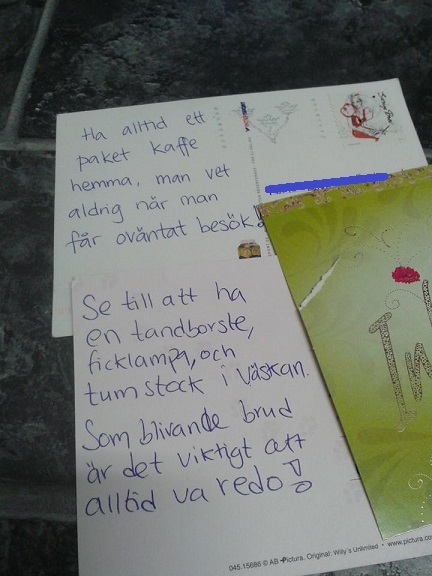 Ha alltid ett
paket kaffe
hemma, man vet
aldrig när man
får oväntat besök
Se till att ha
en tandborste,
ficklampa, och
tumstock i väskan.
Som blivande brud
är det viktigt att
alltid va redo!
045.15686 © AB Pictura. Original: Willy's Unlimited • www.pictura.co